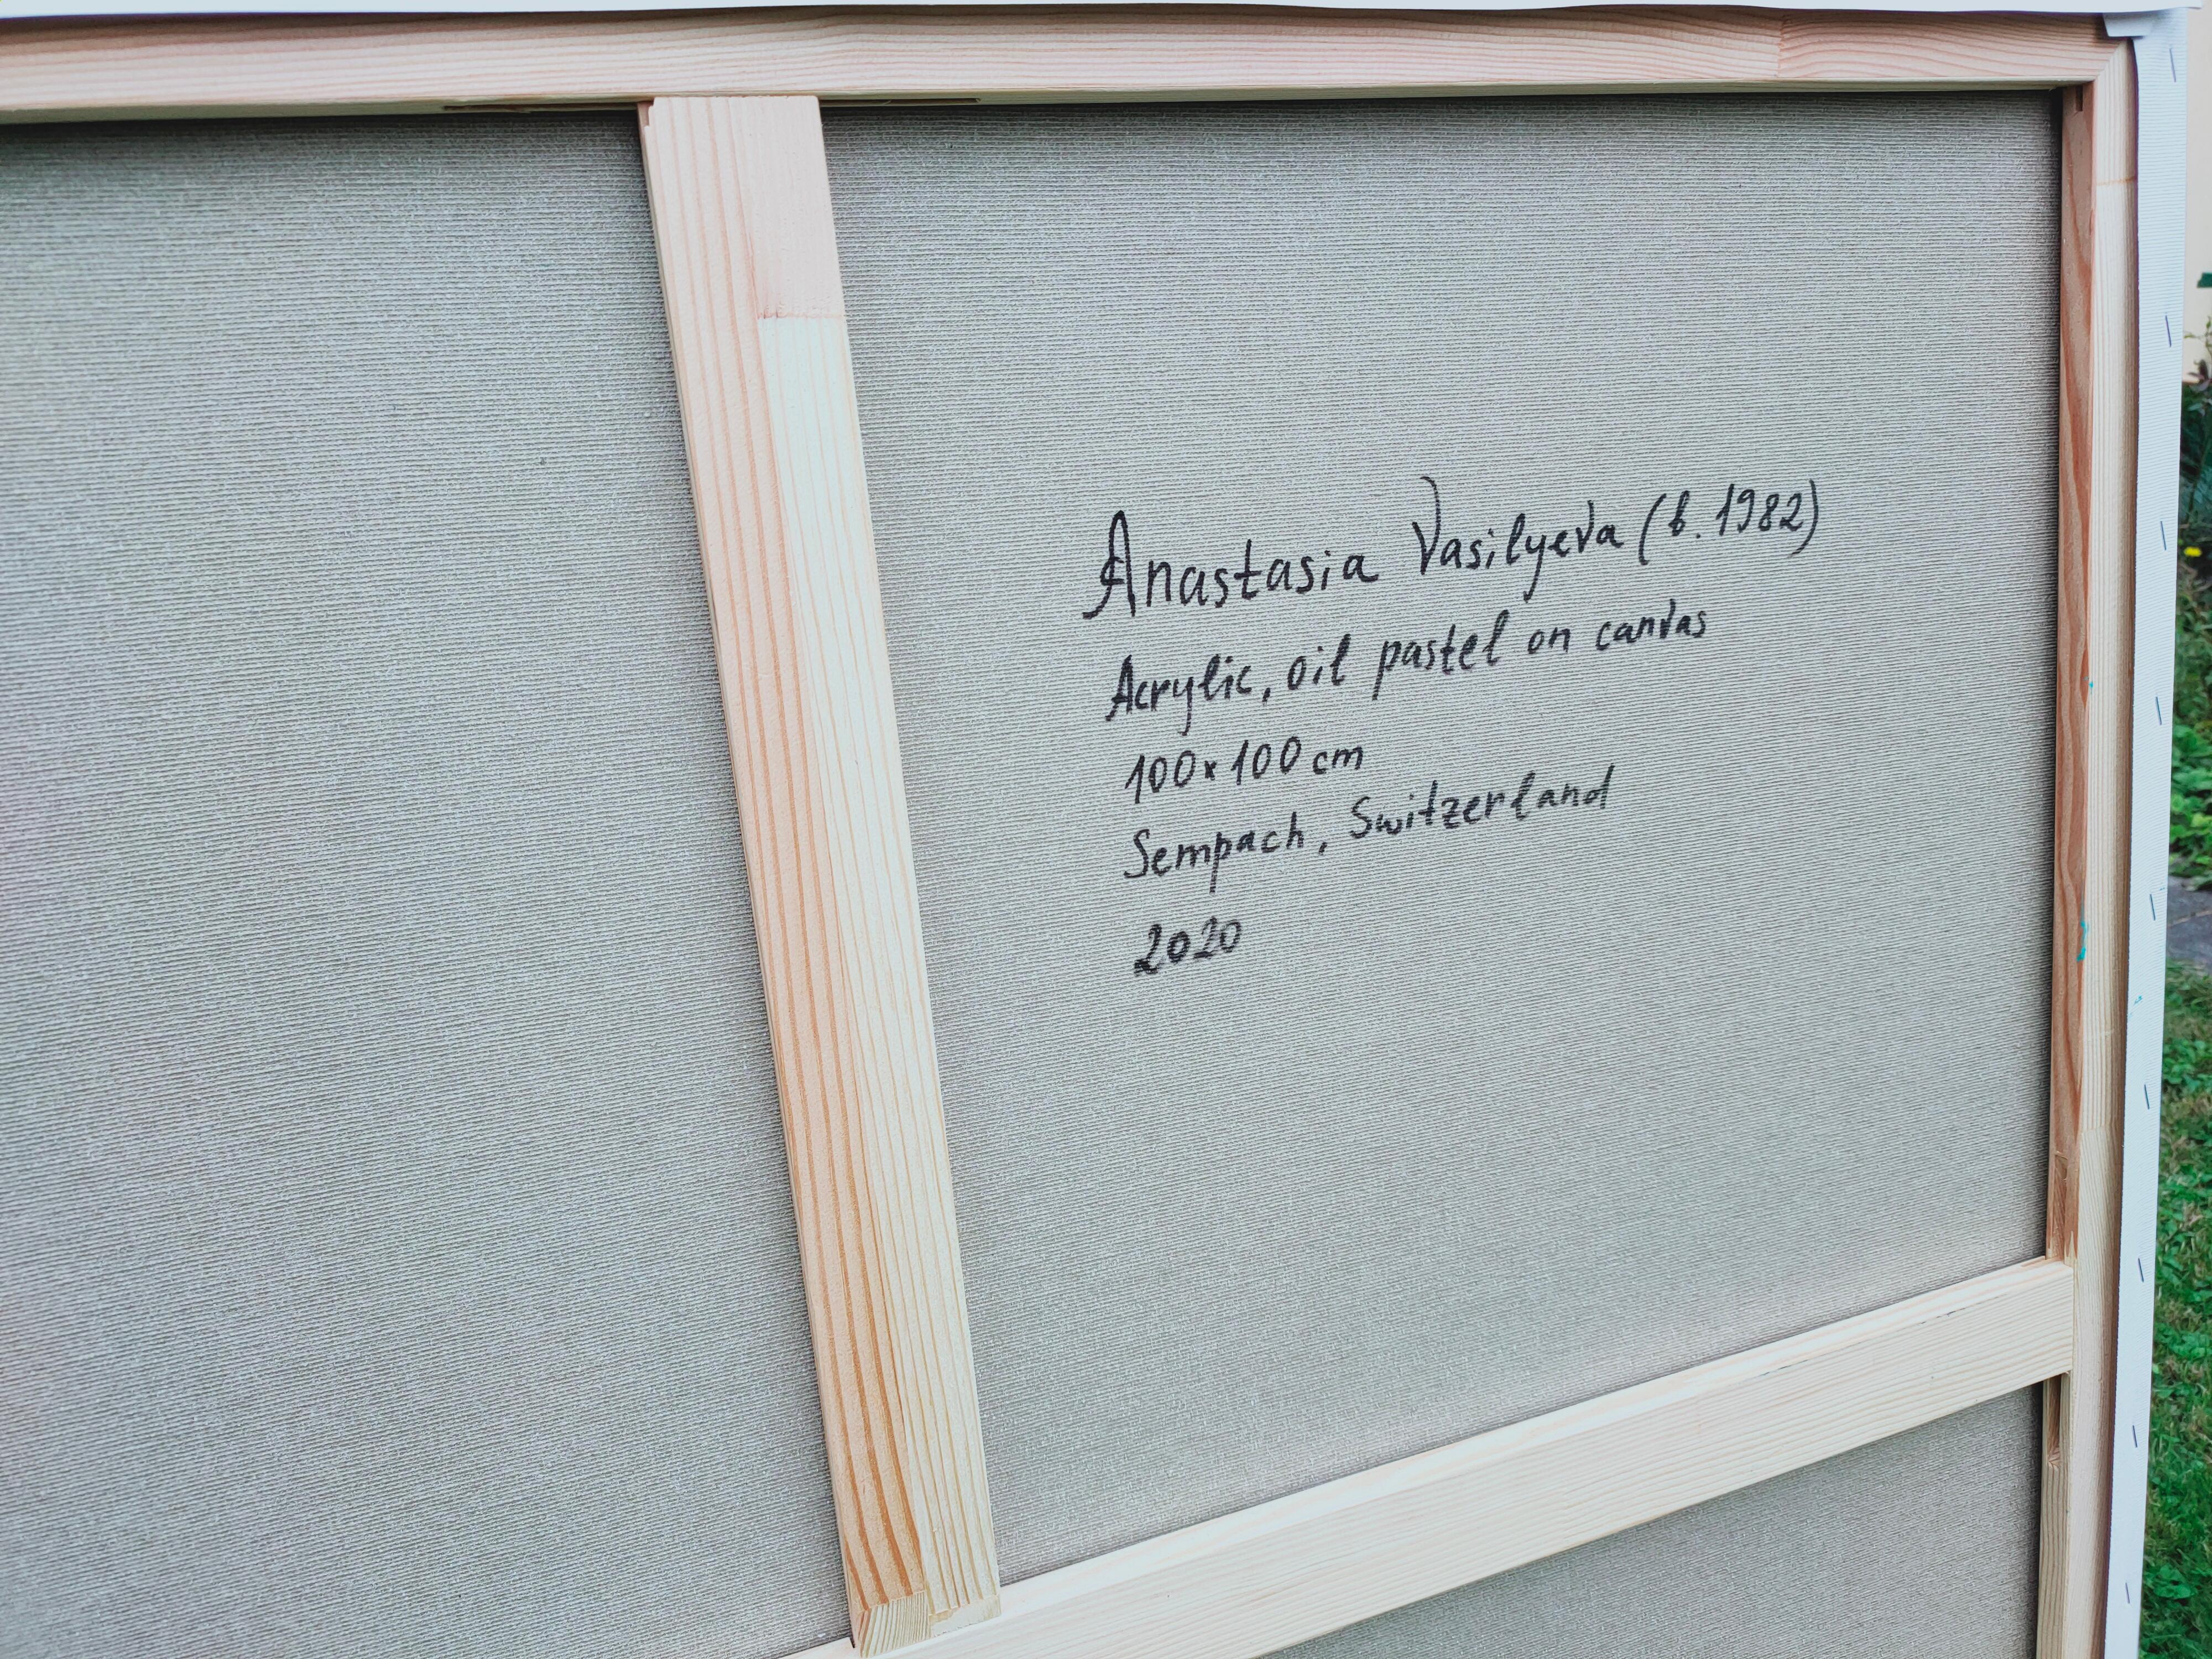 Anastasia Vasilyeva (b. 1982)
Acrylic, oil pastel on canvas
100x100 cm
Sempach, Switzerland
2020